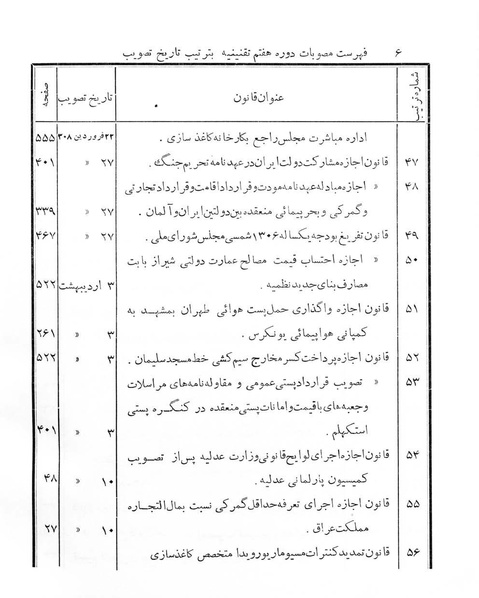 ۶ فهرست مصوبات دوره هفتم تقنینیه بترتیب تاریخ تصویب
شماره ترتیب عنوان قانون تاریخ تصویب صفحه
اداره مباشرت مجلس راجع بکارخانه کاغذ سازی . ۲۲ فروردین ۳۰۸ ۵۵۵
۴۷ قانون اجازه مشارکت دولت ایران در عهدنامه تحریم جنگ . ۲۷ » ۴۰۱
۴۸ » اجازه مبادله عهدنامه مودت و قرارداد اقامت و قرارداد تجارتی
و گمرکی و بحر پیمائی منعقده بین دولتین ایران و آلمان . ۲۷ » ۳۳۹
۴۹ قانون تفریغ بودجه یکساله ۱۳۰۶ شمسی مجلس شورای ملی . ۲۷ » ۴۶۷
۵۰ » اجازه احتساب قیمت مصالح عمارت دولتی شیراز بابت
مصارف بنای جدید نظمیه . ۳ اردیبهشت ۵۲۲
۵۱ قانون اجازه واگذاری حمل پست هوائی طهران بمشهد به
کمپانی هواپیمائی یونکرس . ۳ » ۲۶۱
۵۲ قانون اجازه پرداخت کسر مخارج سیم کشی خط مسجد سلیمان . ۳ » ۵۲۲
۵۳ » تصویب قرارداد پستی عمومی و مقاوله نامه های مراسلات
و جعبه های باقیمت و امانات پستی منعقده در کنگره پستی
استکهلم . ۳ » ۴۰۱
۵۴ قانون اجازه اجرای لوایح قانونی وزارت عدلیه پس از تصویب
کمیسیون پارلمانی عدلیه . ۱۰ » ۴۸
۵۵ قانون اجازه اجرای تعرفه حداقل گمرکی نسبت بمال التجاره
مملکت عراق . ۱۰ » ۲۷
۵۶ قانون تمدید کنترات مسیو ماریو رویدا متخصص کاغذ سازی